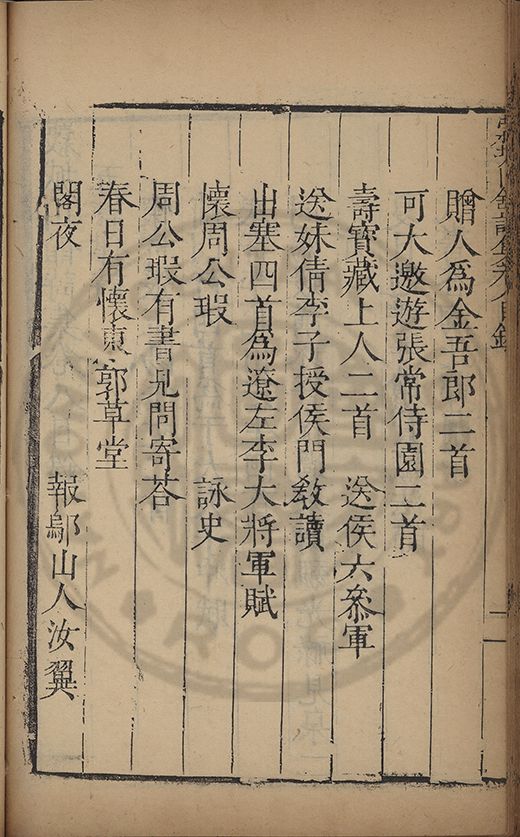 贈人爲金吾郎二首
可大邀遊張常侍園二首
壽寶藏上人二首 送侯六叅軍
送妹倩李子授侯門敎讀
出塞四首爲遼左李大將軍賦
懷周公瑕 詠史
周公瑕有書見問寄荅
春日有懷東郭草堂
閣夜 報鄔山人汝翼